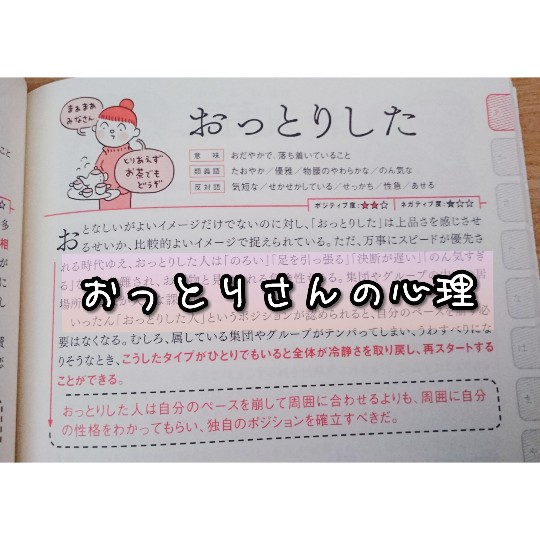 まぁまぁ
みなさん
とりあえず
お茶でも
どうぞ
おっとりした
意味 おだやかで、落ち着いていること
類義語 たおやか／優雅／物腰のやわらかな／のん気な
反対語 気短な／せかせかしている／せっかち／性急／あせる
ポジティブ度:★★☆ ネガティブ度:★☆☆
おとなしいがよいイメージだけでないのに対し、「おっとりした」は上品さを感じさせ
るせいか、比較的よいイメージで捉えられている。ただ、万事にスピードが優先さ
れる時代ゆえ、おっとりした人は「のろい」「足を引っ張る」「決断が遅い」「のん気すぎ
おっとりさんの心理
いったん「おっとりした人」というポジションが認められると、自分のペースを
要はなくなる。むしろ、属している集団やグループがテンパってしまい、うわすべりにな
りそうなとき、こうしたタイプがひとりでもいると全体が冷静さを取り戻し、再スタートする
ことができる。
おっとりした人は自分のペースを崩して周囲に合わせるよりも、周囲に自分
の性格をわかってもらい、独自のポジションを確立すべきだ。